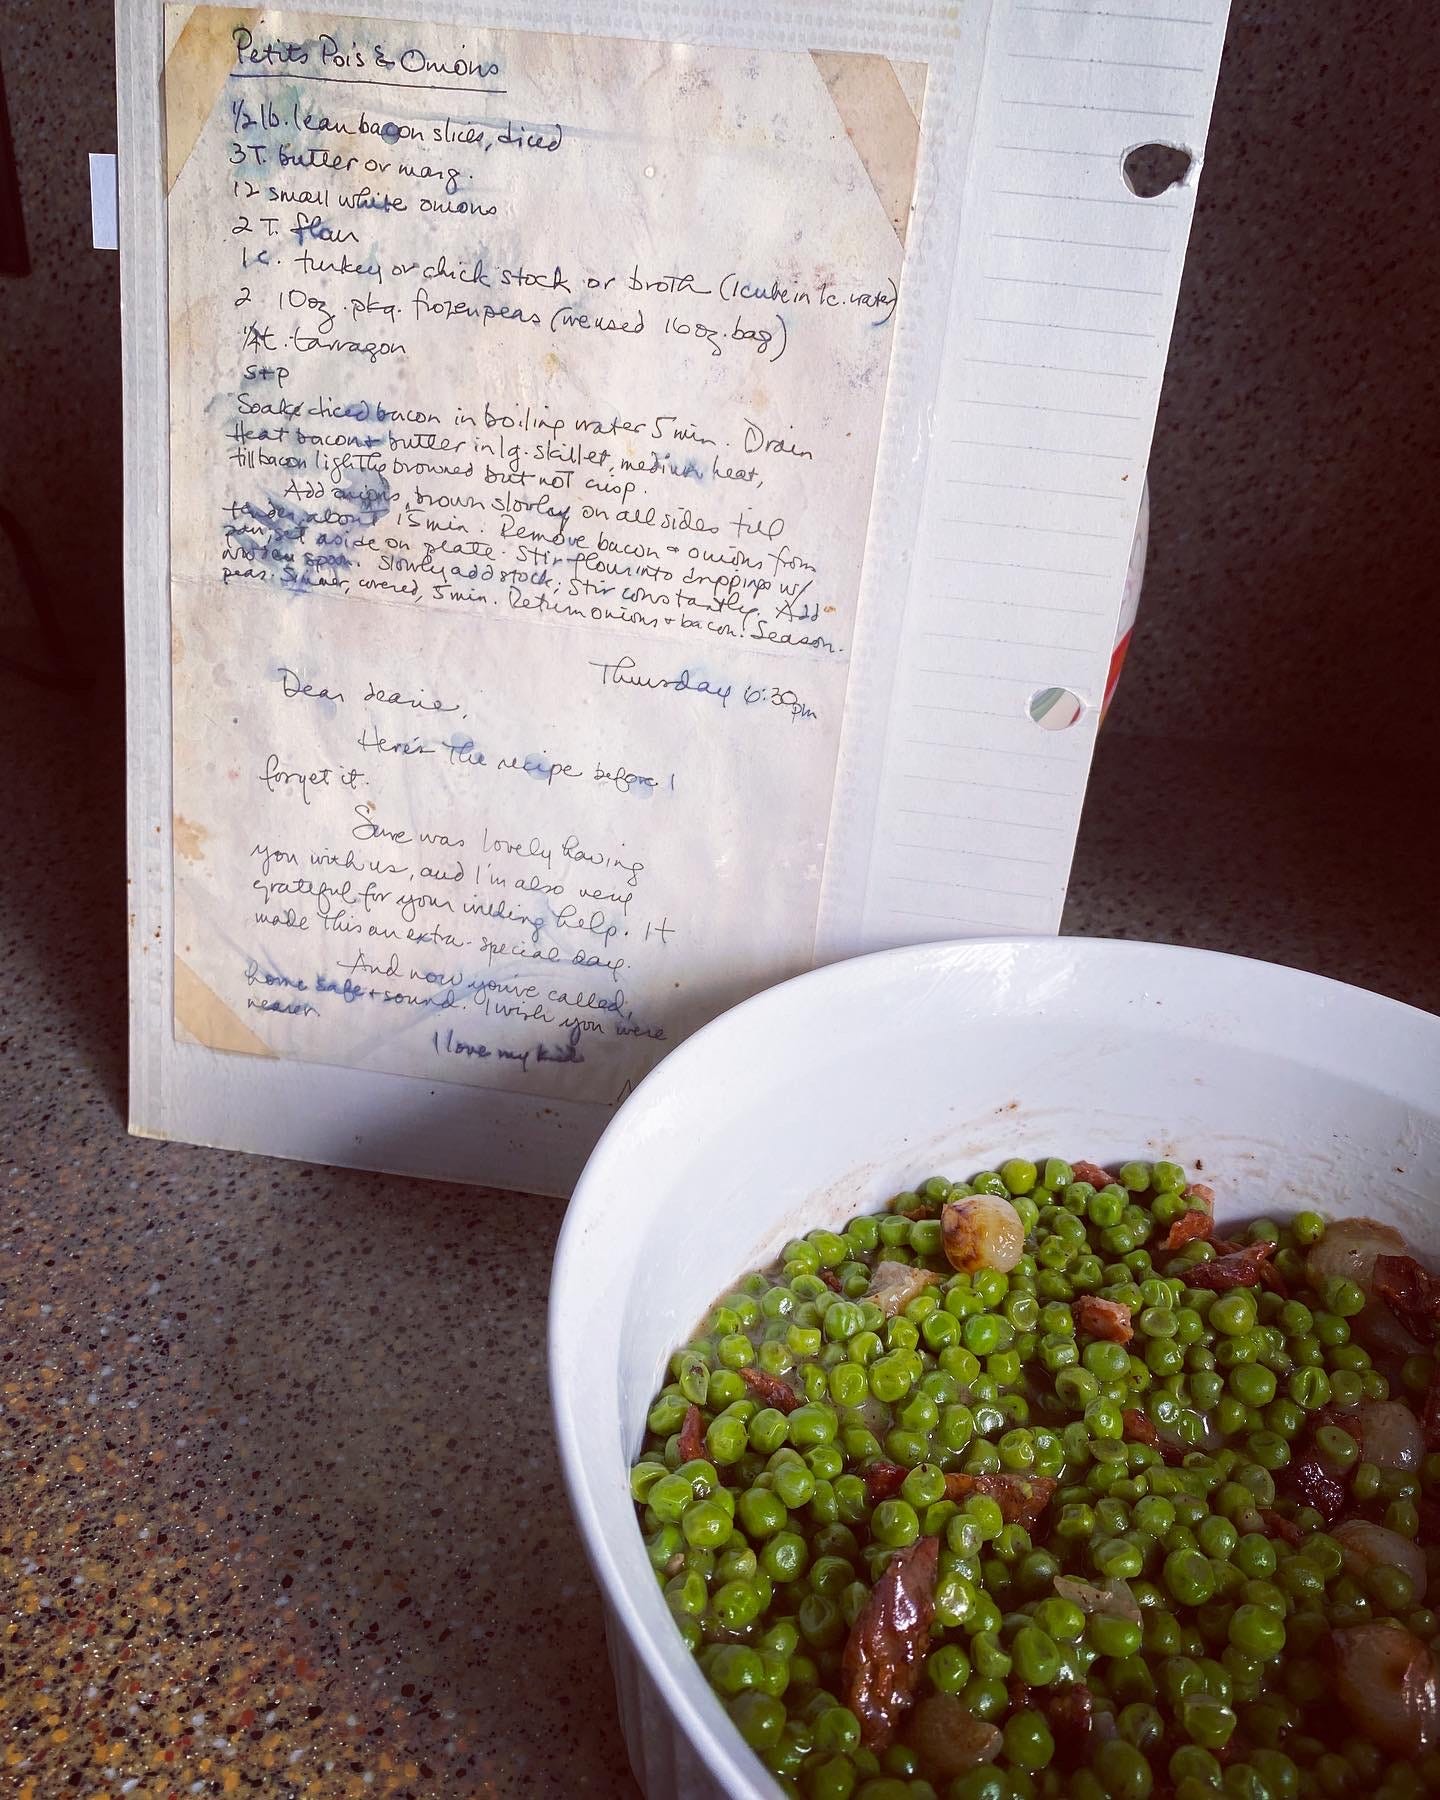 Petits Pois & Onions
1/2 lb. lean bacon slices, diced
3 T. butter or marg.
12 small white onions
2 T. flour
1 c. turkey or chick stock or broth (1 cube in 1c. water)
2 10oz. pkg. frozen peas (we used 16 oz. bag)
1/4 t. tarragon
s+p
Soak diced bacon in boiling water 5 min. Drain
Heat bacon + butter in lg. skillet, medium heat,
till bacon lightly browned but not crisp.
Add onions, brown slowly on all sides till
tender, about 15 min. Remove bacon + onions from
pan, set aside on plate. Stir flour into drippings w/
wooden spoon. Slowly add stock; stir constantly. Add
peas. Simmer, covered, 5 min. Return onions + bacon. Season.
Thursday 6:30pm
Dear dearie,
Here's the recipe before I
forget it.
Sure was lovely having
you with us, and I'm also very
grateful for your willing help. It
made this an extra-special day.
And now you've called,
home safe + sound. I wish you were
nearer.
I love my kid